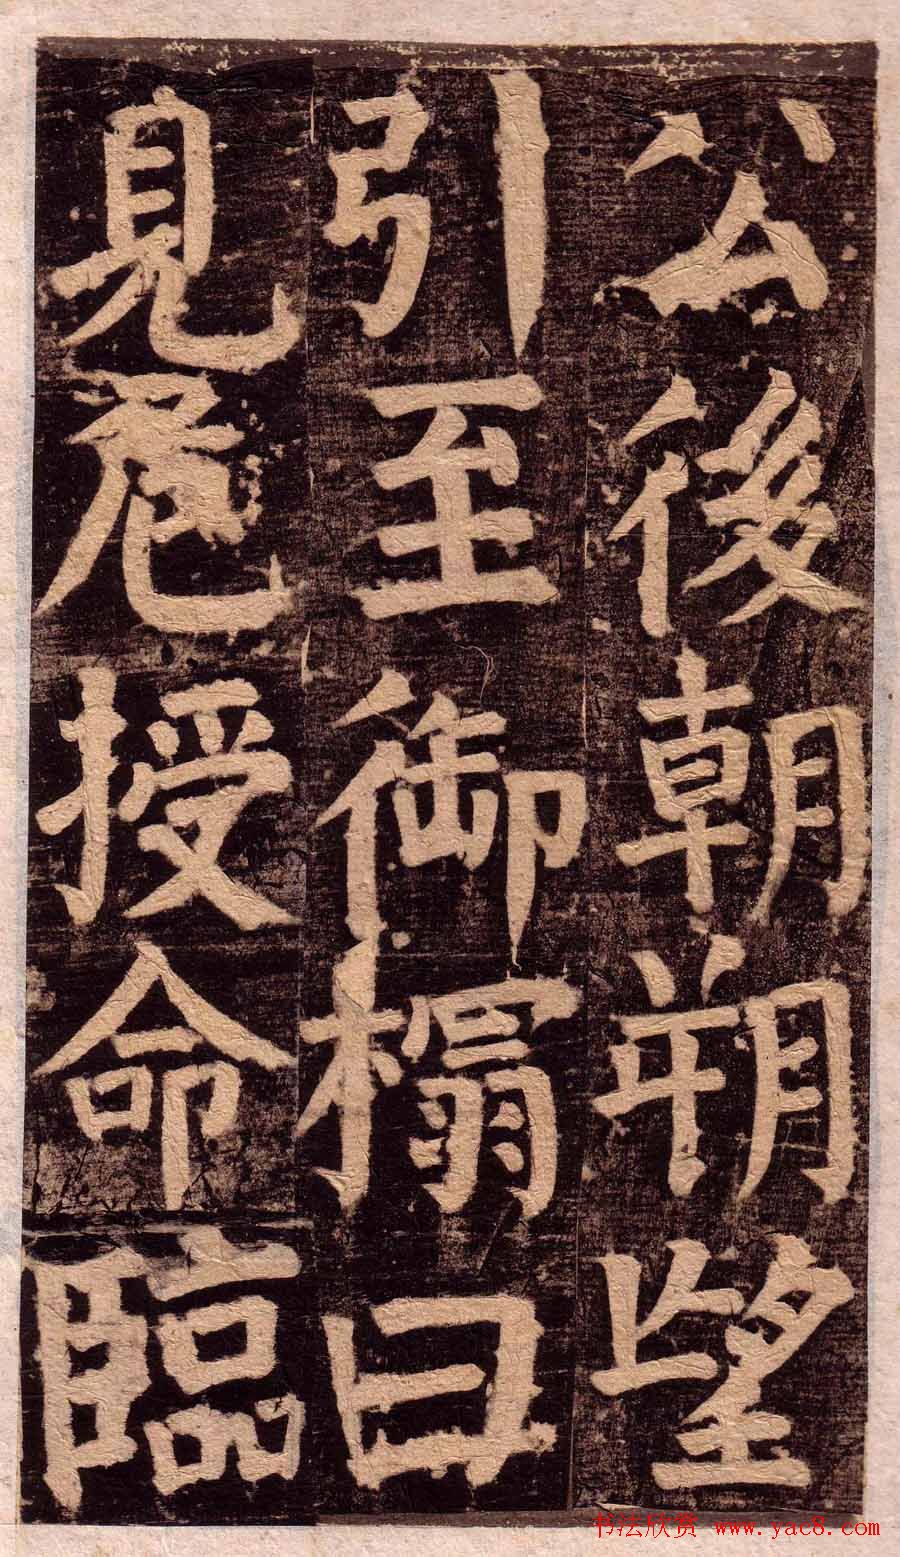 公後朝朔望
引至御榻曰
見危授命臨
书法欣赏 www.yac8.com